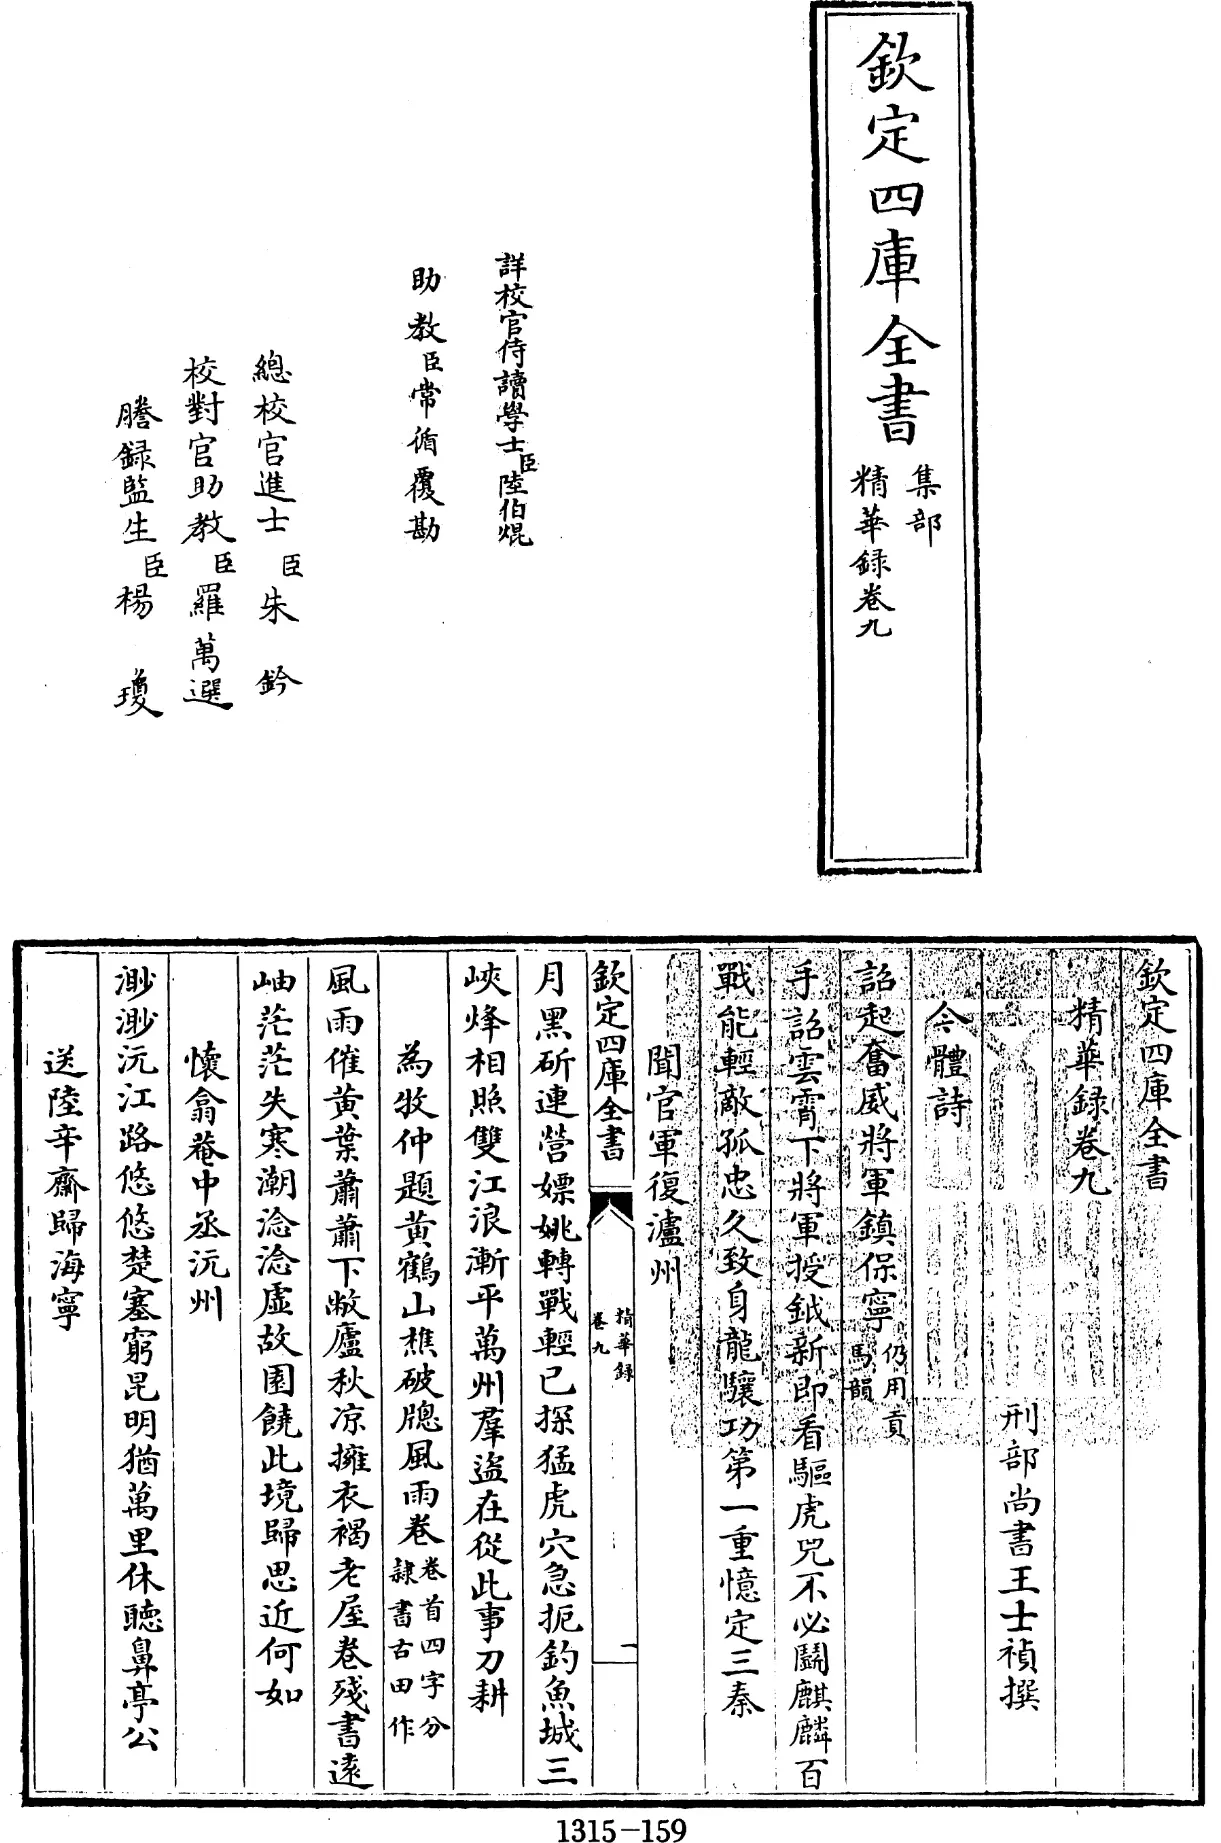 欽定四庫全書
集部
精華録卷九
詳校官侍讀學士臣陸伯焜
助教臣常循覆勘
總校官進士臣朱鈐
校對官助教臣羅萬選
謄録監生臣楊瓊
欽定四庫全書
精華録卷九
刑部尚書王士禎撰
今體詩
詔起奮威將軍鎮保寧仍用貢馬韻
手詔雲霄下將軍授鉞新即看驅虎兕不必鬭麒麟百
戰能輕敵孤忠久致身龍驤功第一重憶定三秦
聞官軍復瀘州
欽定四庫全書
精華録
卷九
一
月黑斫連營嫖姚轉戰輕已探猛虎穴急扼釣魚城三
峽烽相照雙江浪漸平萬州羣盜在從此事刀耕
為牧仲題黄鶴山樵破牕風雨卷卷首四字分隸書古田作
風雨催黄葉蕭蕭下敝廬秋凉擁衣褐老屋卷殘書遠
岫茫茫失寒潮淰淰虛故園饒此境歸思近何如
懷翕菴中丞沅州
渺渺沅江路悠悠楚塞窮昆明猶萬里休聽鼻亭公
送陸辛齋歸海寧
1315-159